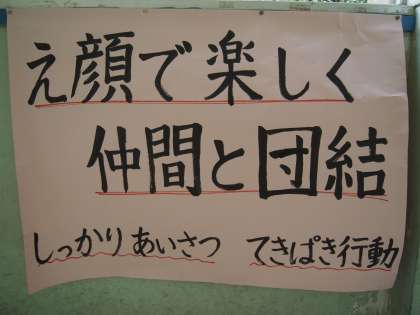 え顔で楽しく
仲間と団結
しっかりあいさつ てきぱき行動